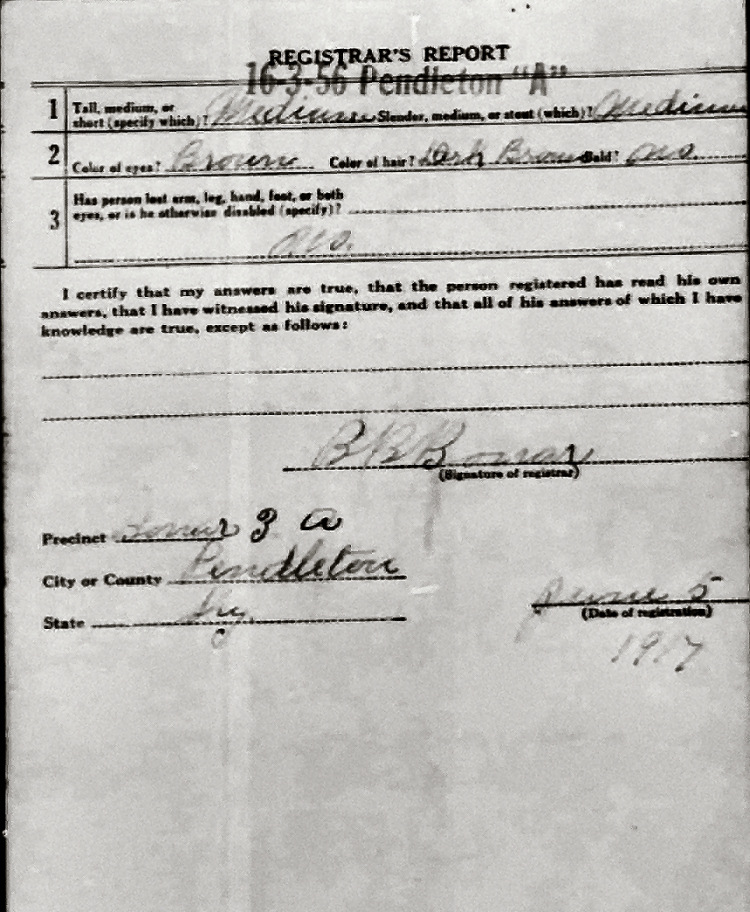 REGISTRAR'S REPORT
16-3-56 Pendleton "A"
1 Tall, medium, or short (specify which)? Medium Slender, medium, or stout (which)? Medium
2 Color of eyes? Brown Color of hair? Dark Brown Bald? No.
3 Has person lost arm, leg, hand, foot, or both
eyes, or is he otherwise disabled (specify)?
No.
I certify that my answers are true, that the person registered has read his own
answers, that I have witnessed his signature, and that all of his answers of which I have
knowledge are true, except as follows:
B B Bomar
(Signature of registrar)
Precinct 3 a
City or County Pendleton
State Ky.
June 5
(Date of registration)
1917